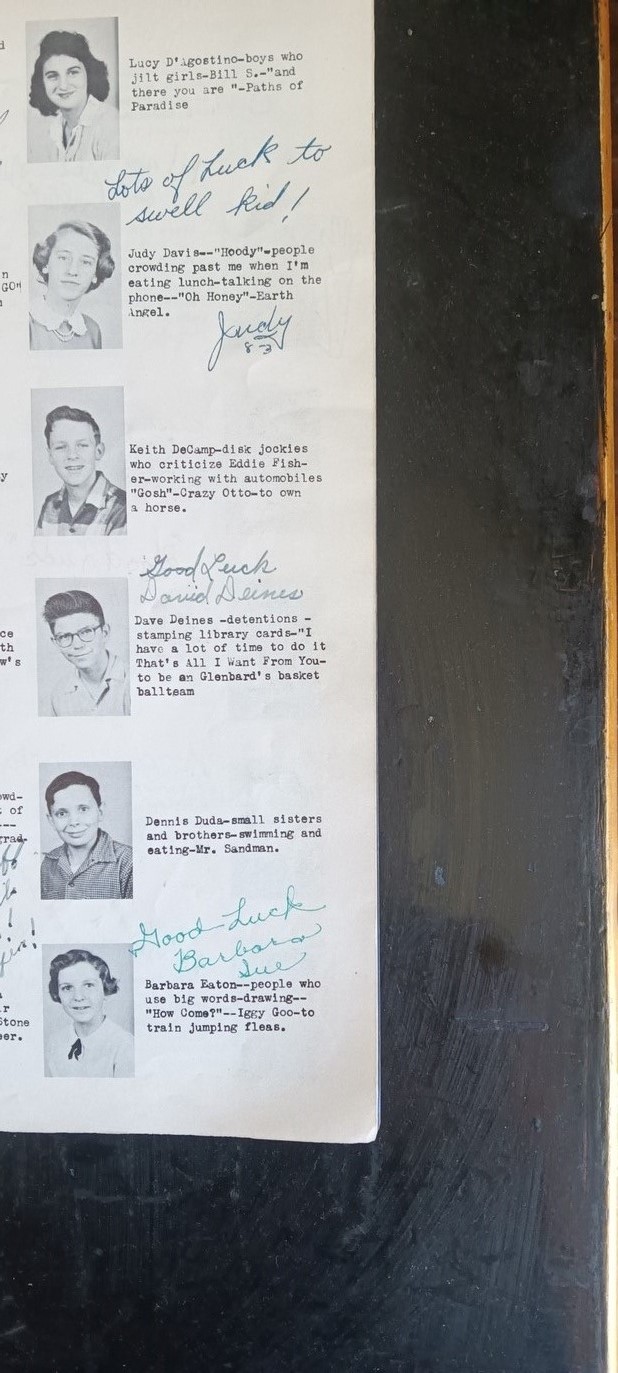 Lucy D'Agostino-boys who
jilt girls-Bill S.-"and
there you are "-Paths of
Paradise
Lots of Luck to
swell kid!
Judy Davis--"Hoody"-people
crowding past me when I'm
eating lunch-talking on the
phone--"Oh Honey"-Earth
Angel.
Judy
GO"
Keith DeCamp-disk jockies
who criticize Eddie Fish-
er-working with automobiles
"Gosh"-Crazy Otto-to own
a horse.
Good Luck
David Deines
Dave Deines -detentions -
stamping library cards-"I
have a lot of time to do it
That's All I Want From You-
to be an Glenbard's basket
ballteam
ce
th
w's
Dennis Duda-small sisters
and brothers-swimming and
eating-Mr. Sandman.
owd-
of
---
grad-
Good Luck
Barbara
Sue
Barbara Eaton--people who
use big words-drawing--
"How Come?"--Iggy Goo-to
train jumping fleas.
r
Stone
eer.